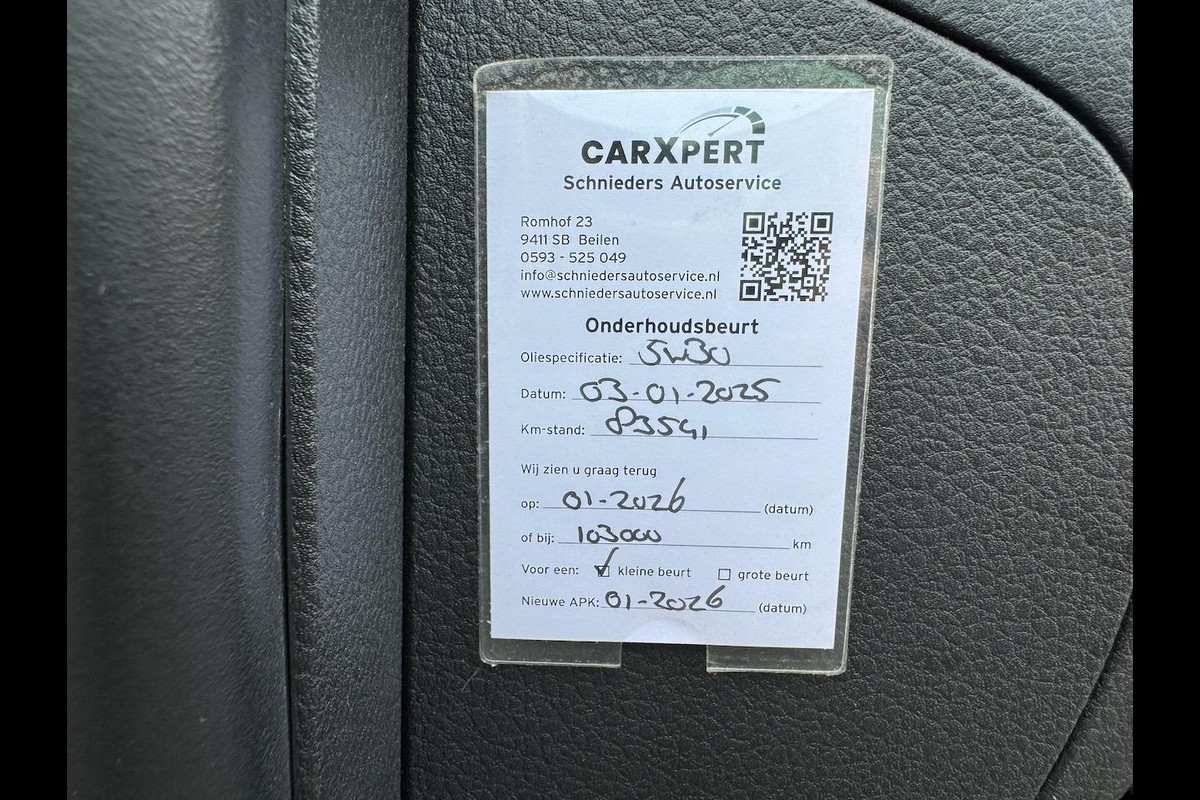 CARXPERT
Schnieders Autoservice
Romhof 23
9411 SB Beilen
0593 - 525 049
info@schniedersautoservice.nl
www.schniedersautoservice.nl
Onderhoudsbeurt
Oliespecificatie: 5w30
Datum: 03-01-2025
Km-stand: 83541
Wij zien u graag terug
op: 01-2026 (datum)
of bij: 103000 km
Voor een: ☑ kleine beurt ☐ grote beurt
Nieuwe APK: 01-2026 (datum)